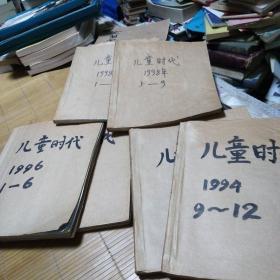 儿童时代
1998
1—
儿童时代
1998年
1—9
儿童时代
1996
1—6
儿
儿童时
1994
9～12